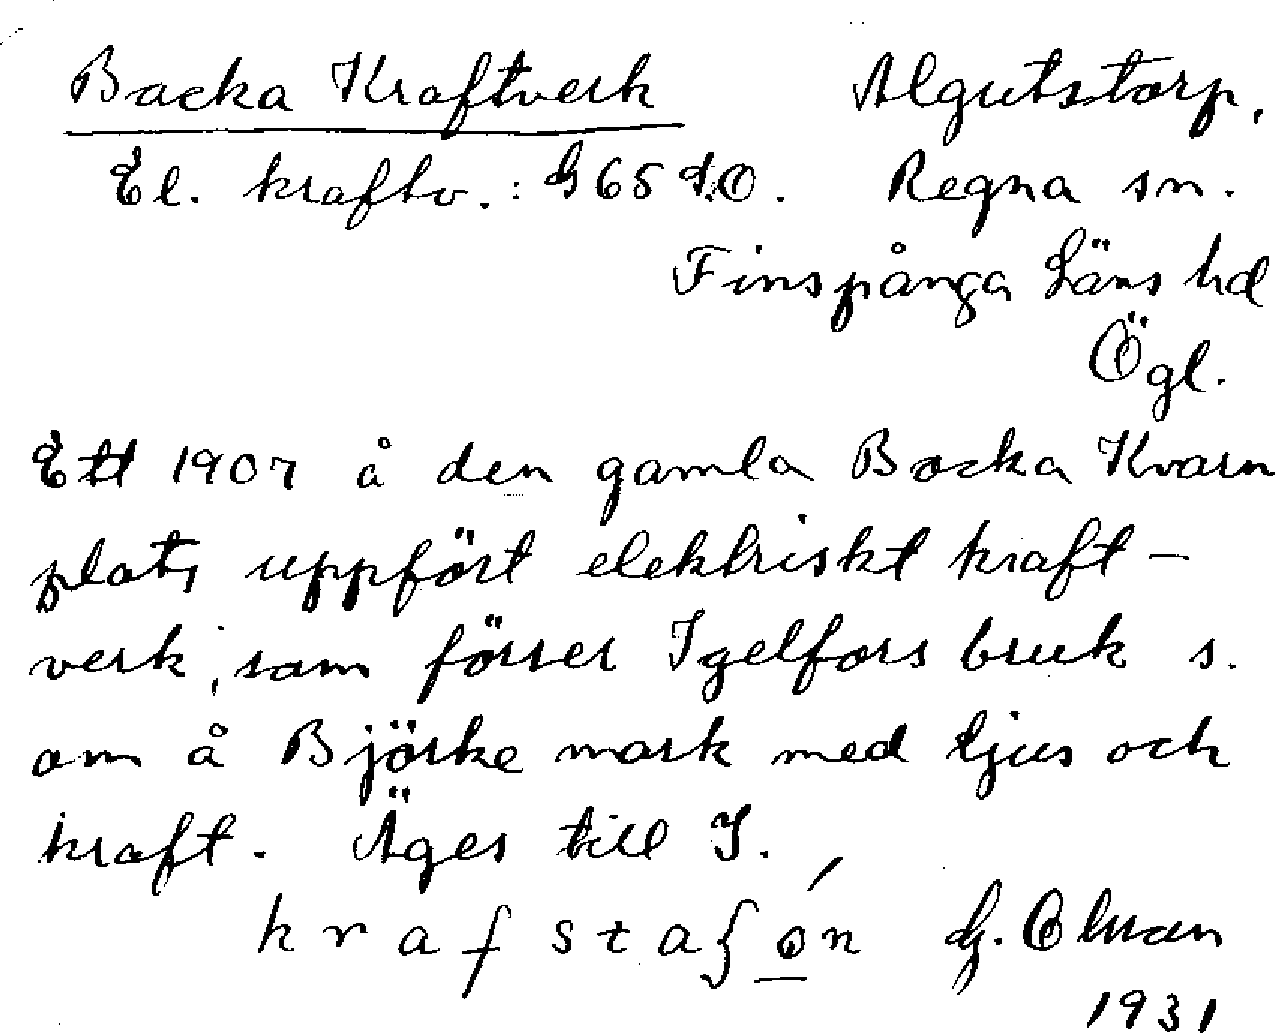 Backa Kraftverk Algutstorp,
El. kraftv.: G65 S.O. Regna sn.
Finspånga Läns hd
Ögl.
Ett 1907 å den gamla Backa Kvarn
plats uppfört elektriskt kraft-
verk, som förser Igelfors bruk s.
om å Björke mark med ljus och
kraft. Äges till I.
krafstaʃón G. Ohman
1931